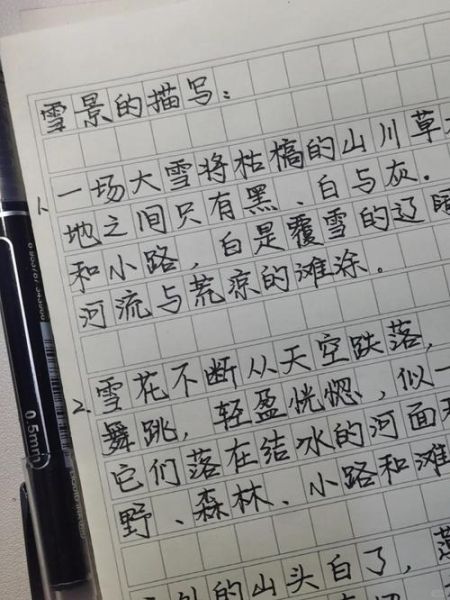 雪景的描写：
1. 一场大雪将枯槁的山川草
地之间只有黑、白与灰.
和小路，白是覆雪的辽阔
河流与荒凉的滩涂。
2. 雪花不断从天空跌落，
舞跳，轻盈恍惚、似一
它们落在结冰的河面和
野、森林、小路和滩
外的山头白了，落
0.5mm